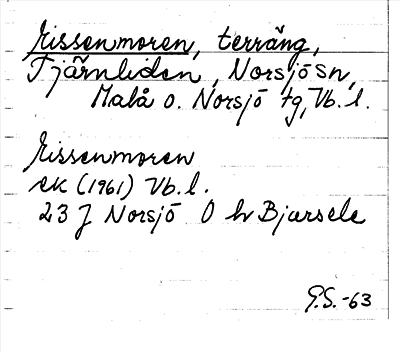 Rissenmoren, terräng,
Tjärnliden, Norsjö sn,
Malå o. Norsjö tg, Vb. l.
Rissenmoren
ek (1961) Vb. l.
23 J Norsjö O h Bjursele
G.S. -63